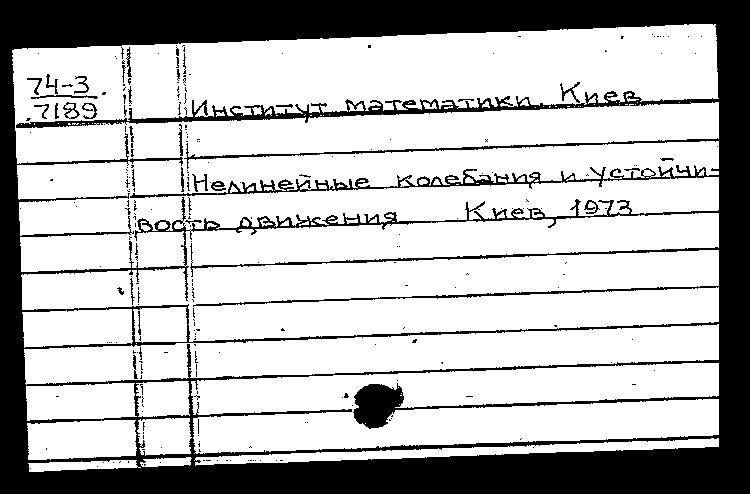 74-3
7189
Институт математики. Киев
Нелинейные колебания и устойчи-
вость движения Киев, 1973